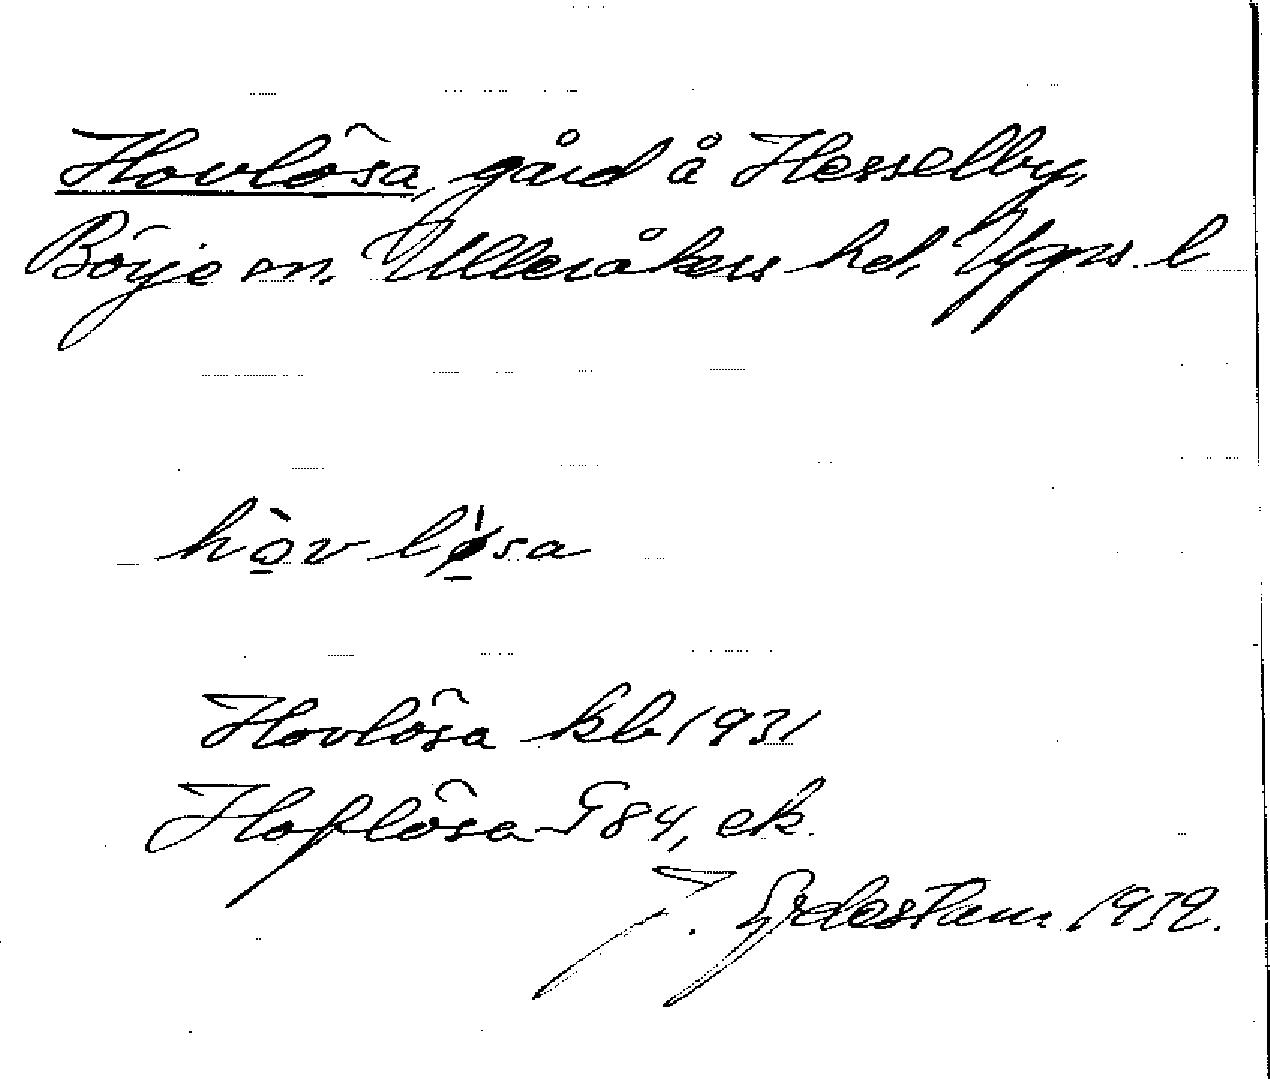 Hovlösa, gård å Hesselby,
Börje sn, Ulleråkers hd, Upps. l
hòv lǿsa
Hovlösa kb 1931
Hoflösa G 84, ek.
J. Gjdestam 1932.